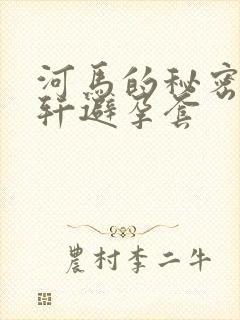 河馬的秘密
轩避孕套
農村李二牛